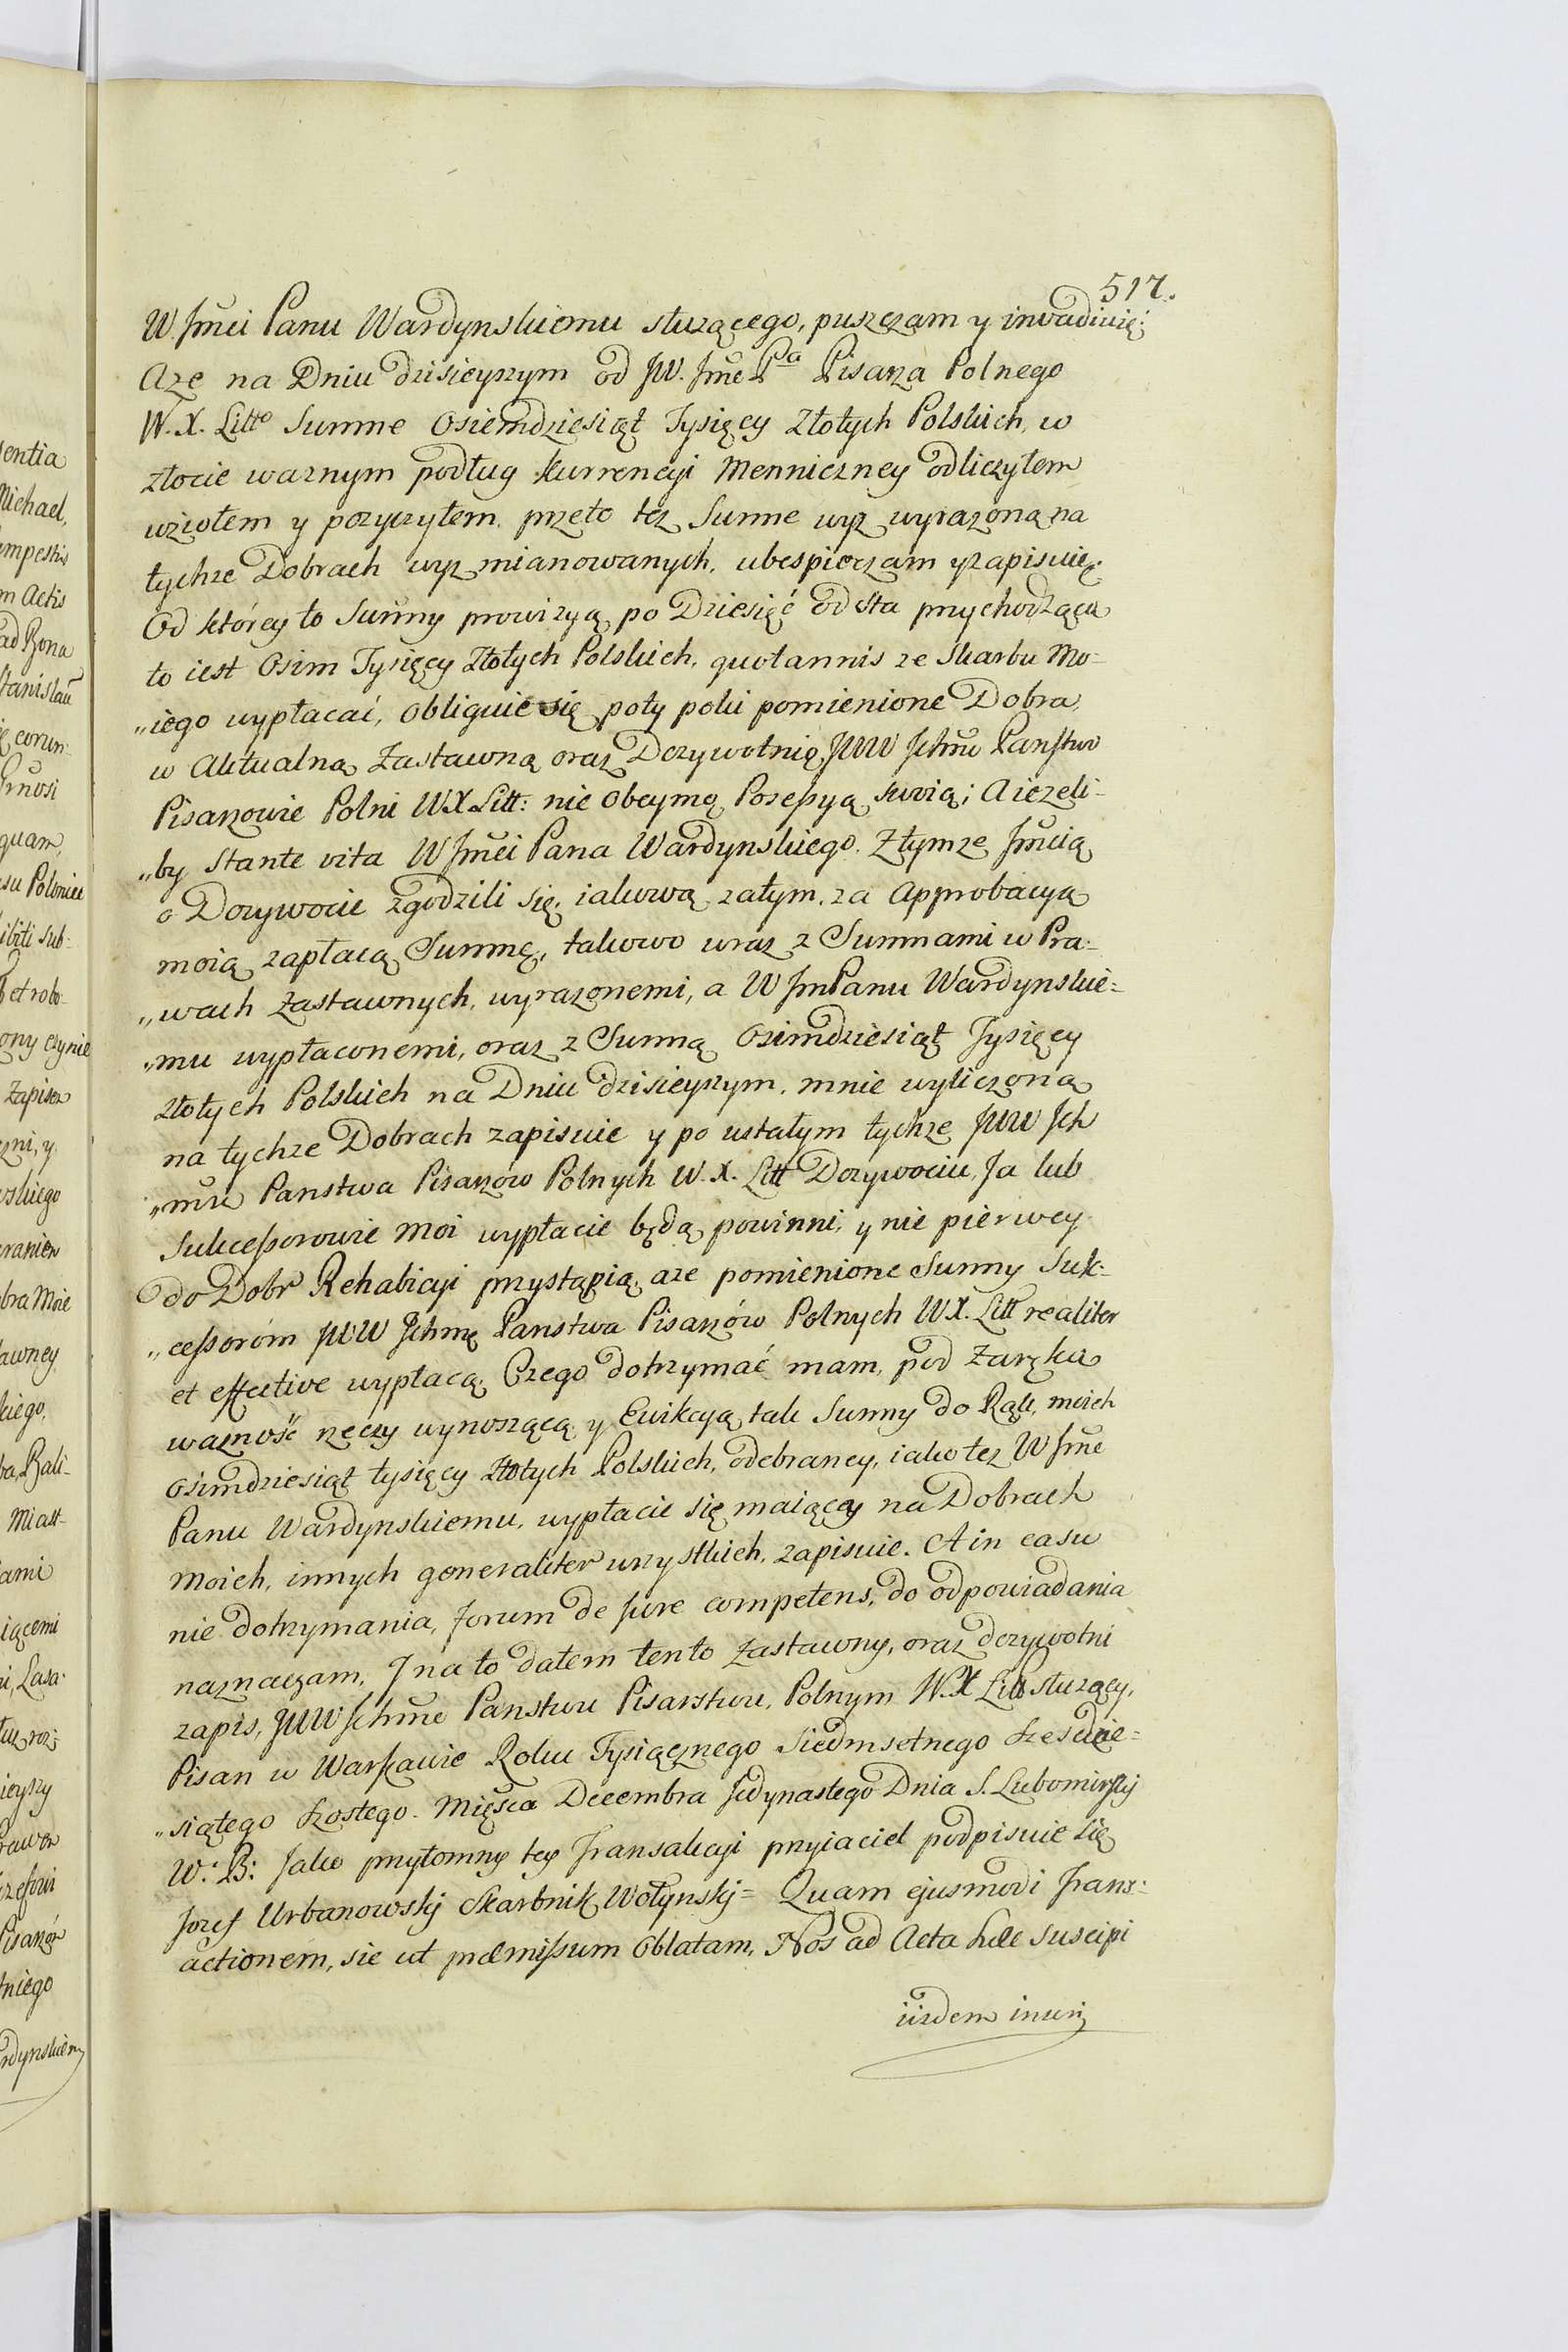 517.
W Jmci Panu Wardynskiemu słuzącego, puszczam y inwadiuię;
Aze na Dniu dzisieyszym od JW. Jmć Pa Pisarza Polnego
W. X. Litto Summe Osiemdziesiąt Tysięcy Złotych Polskich, w
złocie waznym podług kurrencyi Menniczney odliczyłem
wziołem y pozyczyłem, przeto tez Summe wyz wyrazoną na
tychze Dobrach wyz mianowanych, ubespieczam y zapisuię.
Od którey to Summy prowizyą po Dziesięć od sta przychodzącą
to iest Osim Tysięcy Złotych Polskich, quotannis ze Skarbu Mo-
„iego wypłacać, obliguie się poty poki pomienione Dobra,
w Aktualną Zastawną oraz Dozywotnią JWW Ichmć Panstwo
Pisarzowie Polni WX Litt: nie obeymą Possessyą swoią; A iezeli-
„by Stante vita W Jmci Pana Wardynskiego. Z tymze Jmcią
o Dozywocie zgodzili się, iakową zatym, za Approbacyą
moią zapłacą Summę, takowo wraz z Summami w Pra-
„wach Zastawnych, wyrazonemi, a W Jm Panu Wardynskie-
„mu wypłaconemi, oraz z Summą Osimdziesiąt Tysięcy
złotych Polskich na Dniu dzisieyszym, mnie wyliczoną
na tychze Dobrach zapisuie y po ustałym tychze JWW Ich
„mć Panstwa Pisarzów Polnych W. X. Litt Dozywociu, Ja lub
Sukcessorowie Moi wypłacić będą powinni, y nie pierwey
do Dobr Rehabicyi przystąpią, aze pomienione Summy Suk-
„cessoróm JWW Ichmć Panstwa Pisarzów Polnych WX. Litt realiter
et effective wypłacą. Czego dotrzymać mam, pod Zaręką
wazność rzeczy wynoszącą y Ewikcyą tak Summy do Rąk, moich
osimdziesiąt tysięcy Złotych Polskich, odebraney, iako tez W Jmć
Panu Wardynskiemu, wypłacic się maiącey na Dobrach
Moich, innych generaliter wszystkich, zapisuie. A in casu
nie dotrzymania, Forum de Jure competens, do odpowiadania
naznaczam, J na to dałem tento Zastawny, oraz dozywotni
zapis, JWW Ichmć Panstwu Pisarstwu, Polnym W.X Litt słuzący,
Pisan w Warszawie Roku Tysiącznego Siedmsetnego Szescdzie-
„siątego Szostego. Mięsca Decembra Jedynastego Dnia S. Lubomirskj
W: B: Jako przytomny tey Transakcyi przyiaciel podpisuie się
Jozef Urbanowskj Skarbnik Wołynskj = Quam ejusmodi Trans-
actionem, sic ut præmissum Oblatam, Nos ad Acta hæc suscipi
iisdem inseri